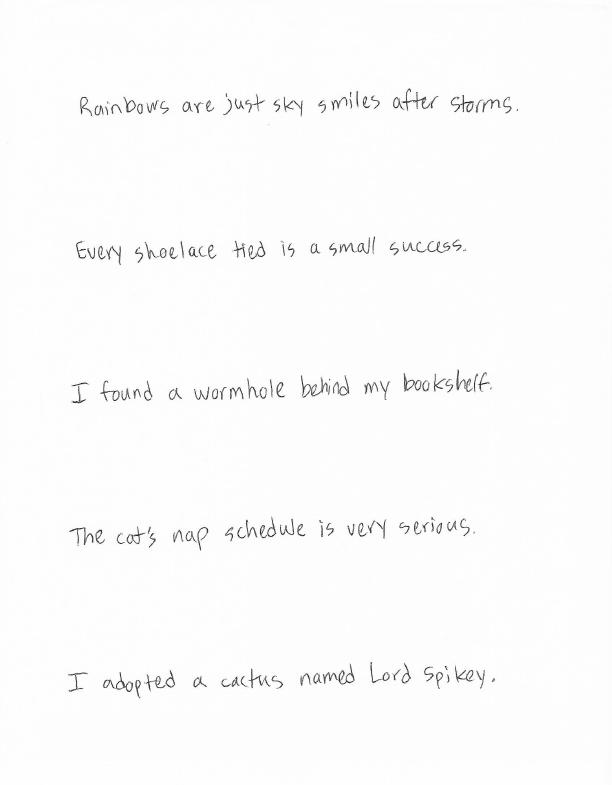 Rainbows are just sky smiles after storms.
Every shoelace tied is a small success.
I found a wormhole behind my bookshelf.
The cat's nap schedule is very serious.
I adopted a cactus named Lord Spikey.